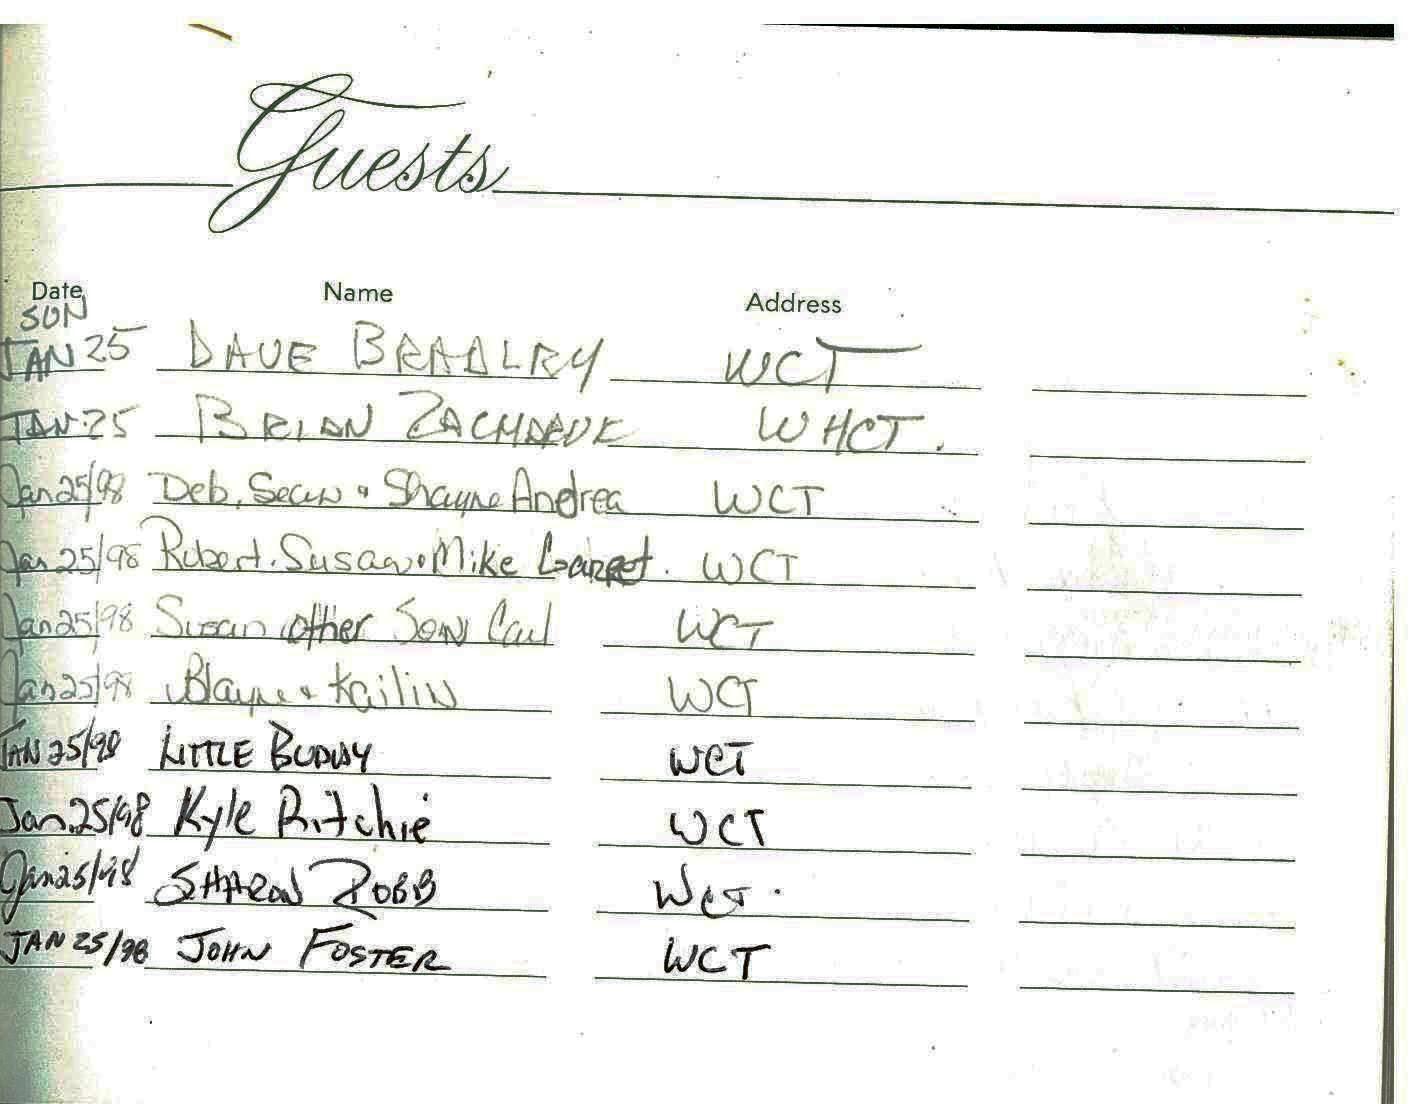 Guests
Date Name Address
SUN
JAN 25 DAVE BRADLEY WCT
JAN. 25 BRIAN WHCT.
Jan 25/98 Deb, Sean & Shayne Andrea WCT
Jan 25/98 Robert. Susan & Mike WCT
Jan 25/98 Susan other Son Carl WCT
Jan 25/98 Blayne & Kailin WCT
JAN 25/98 LITTLE BUDDY WCT
Jan. 25/98 Kyle Ritchie WCT
Jan 25/98 SHARON ROBB WCT.
JAN 25/98 JOHN FOSTER WCT